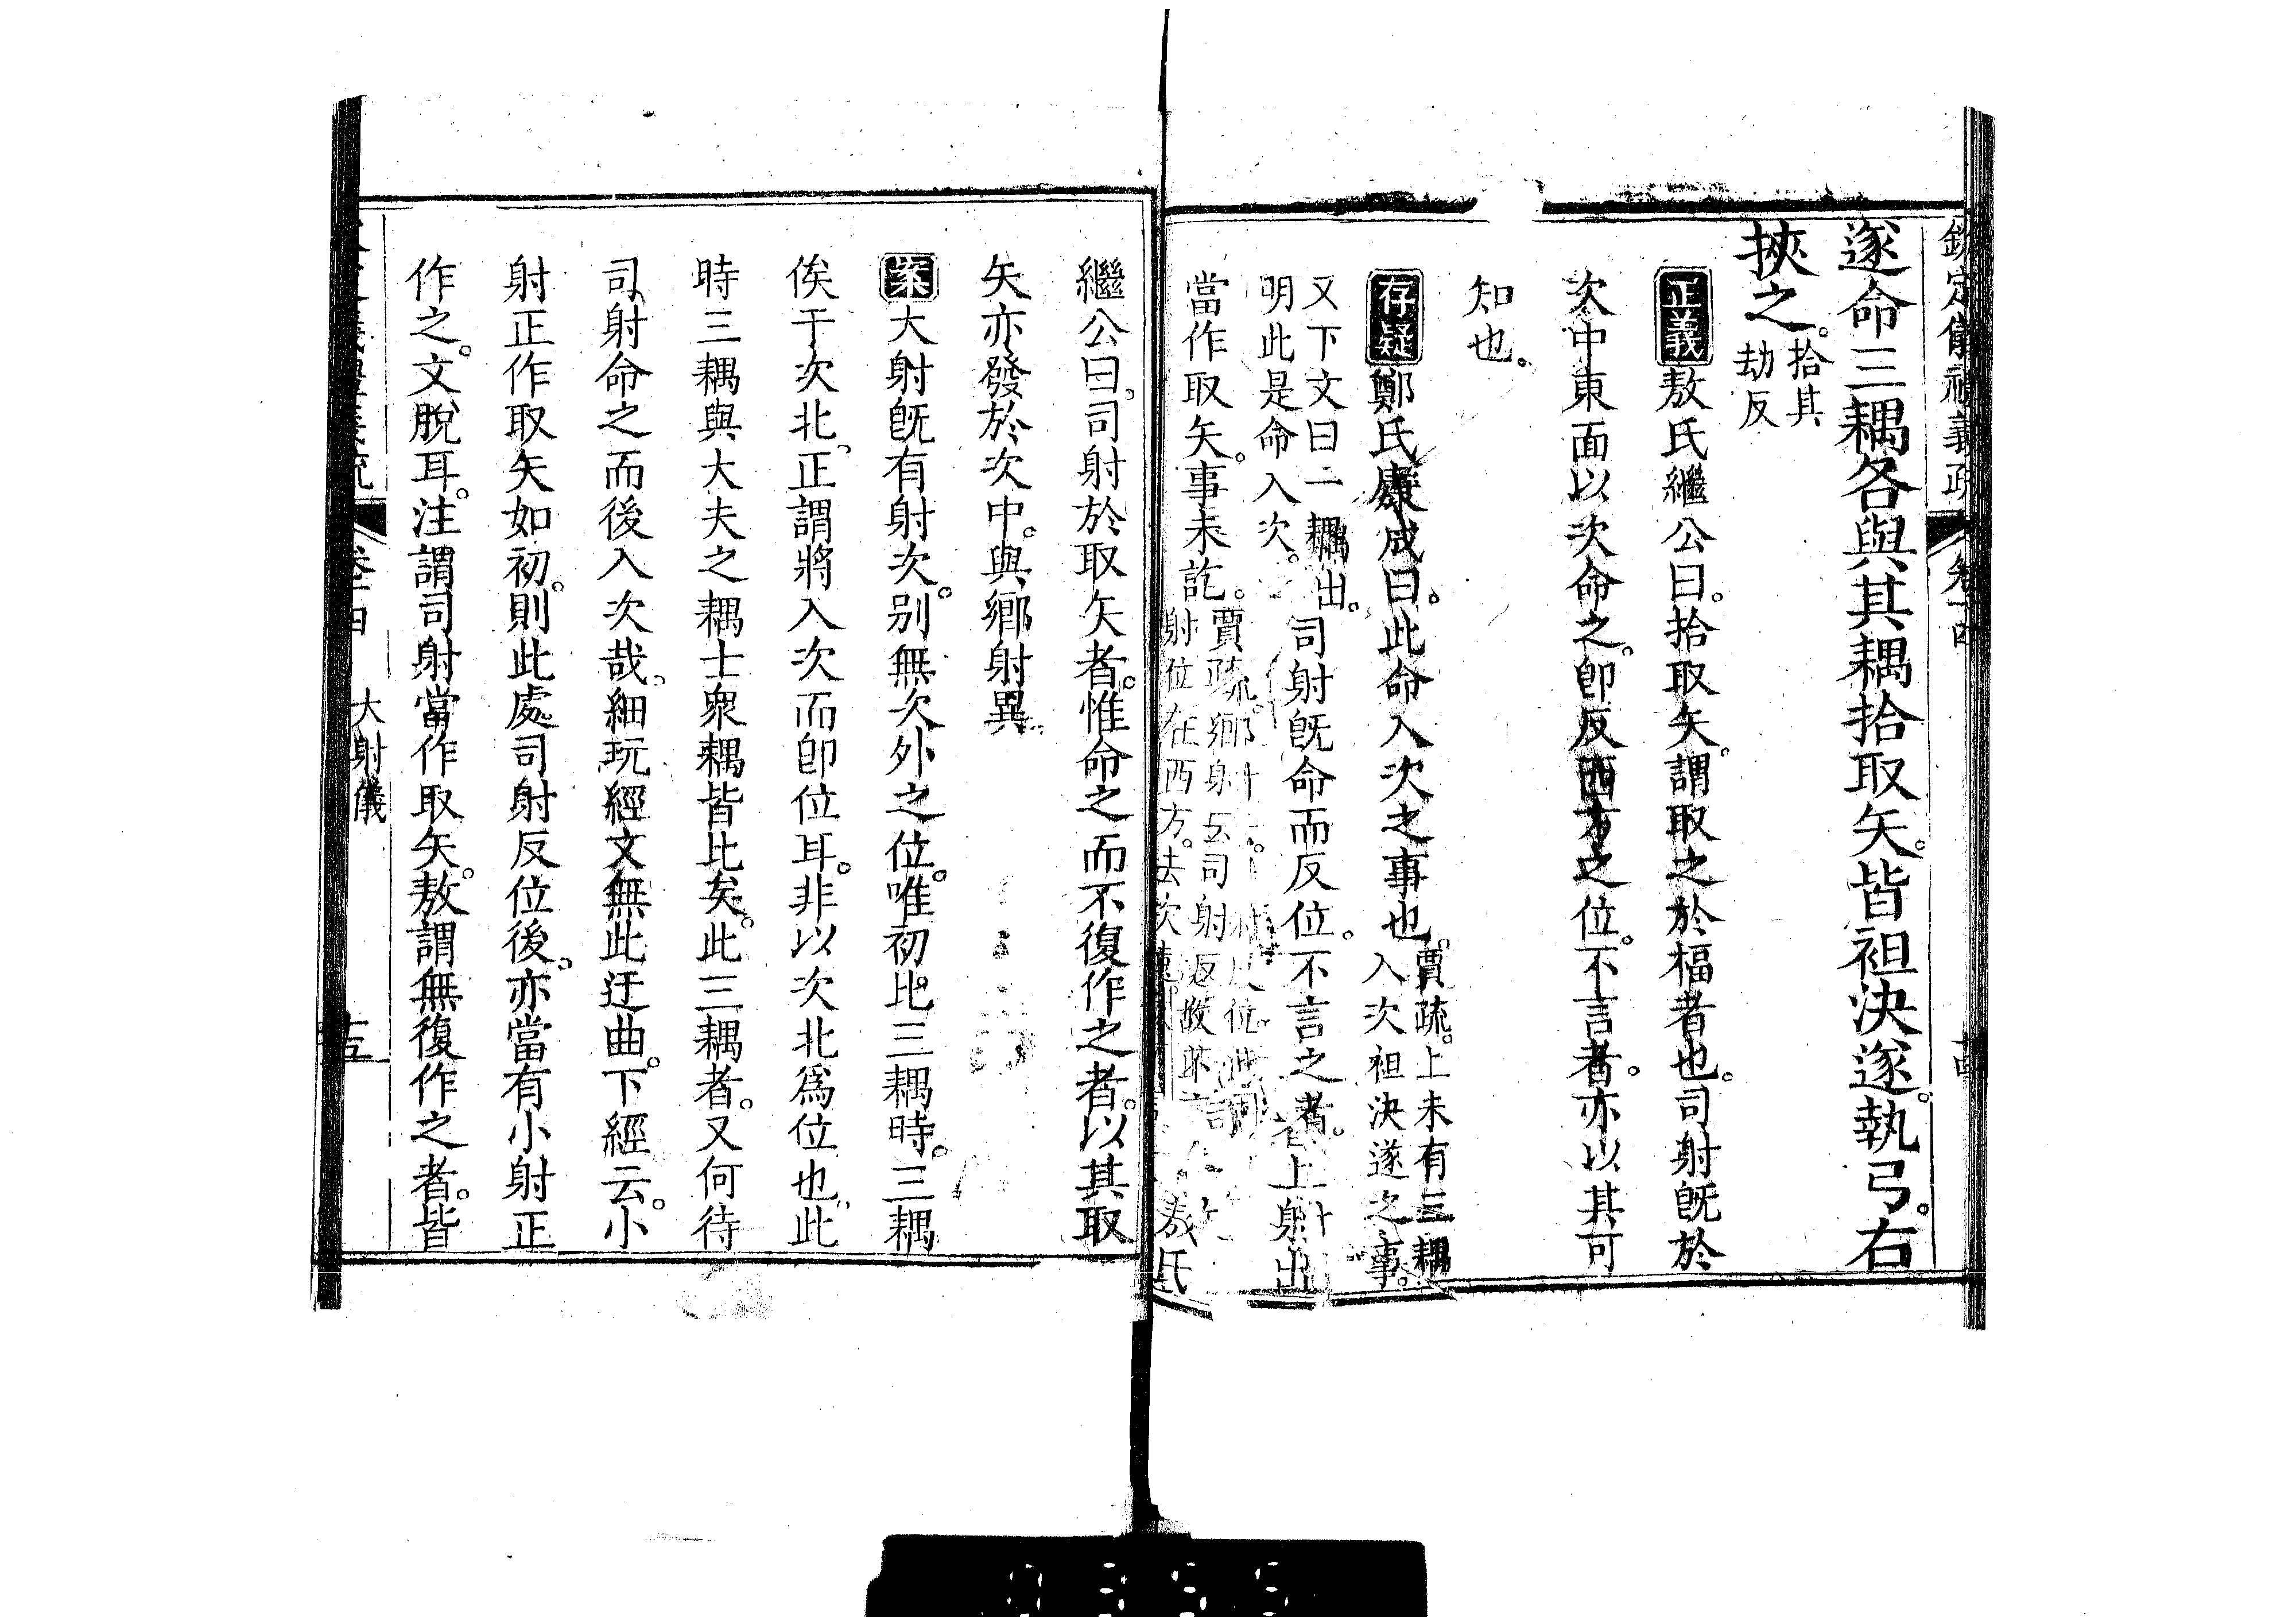 欽定儀禮義疏 卷十四
遂命三耦各與其耦拾取矢。皆袒決遂。執弓。右
挾之。拾其
劫反
正義敖氏繼公曰。拾取矢。謂取之於楅者也。司射旣於
次中東面以次命之。卽反西方之位。不言者。亦以其可
知也。
存疑鄭氏康成曰。此命入次之事也。賈疏。上未有三耦
入次袒決遂之事。
又下文曰一耦出。
明此是命入次。司射旣命而反位。不言之者。上射出
當作取矢。事未訖。賈疏。鄉射
射位在西方。去次 敖氏
繼公曰。司射於取矢者。惟命之而不復作之者。以其取
矢亦發於次中。與鄉射異。
案大射旣有射次。別無次外之位。唯初比三耦時。三耦
俟于次北。正謂將入次而卽位耳。非以次北爲位也。此
時三耦與大夫之耦士衆耦皆比矣。此三耦者。又何待
司射命之而後入次哉。細玩經文無此迂曲。下經云。小
射正作取矢如初。則此處司射反位後。亦當有小射正
作之。文脫耳。注謂司射當作取矢。敖謂無復作之者。皆
大射儀